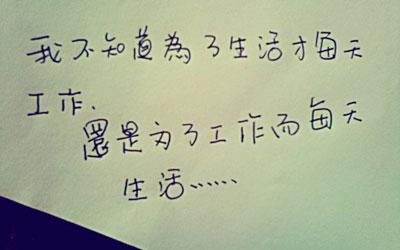 我不知道為了生活才每天
工作.
還是为了工作而每天
生活……